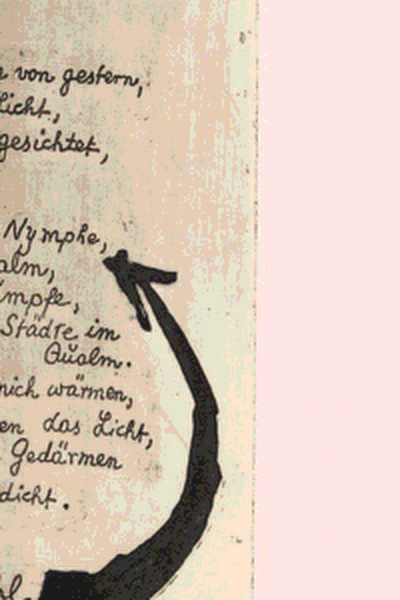 von gestern,
licht,
gesichtet,
Nymphe,
alm,
ümpfe,
Städte im
Qualm.
mich wärmen,
en das Licht,
Gedärmen
dicht.